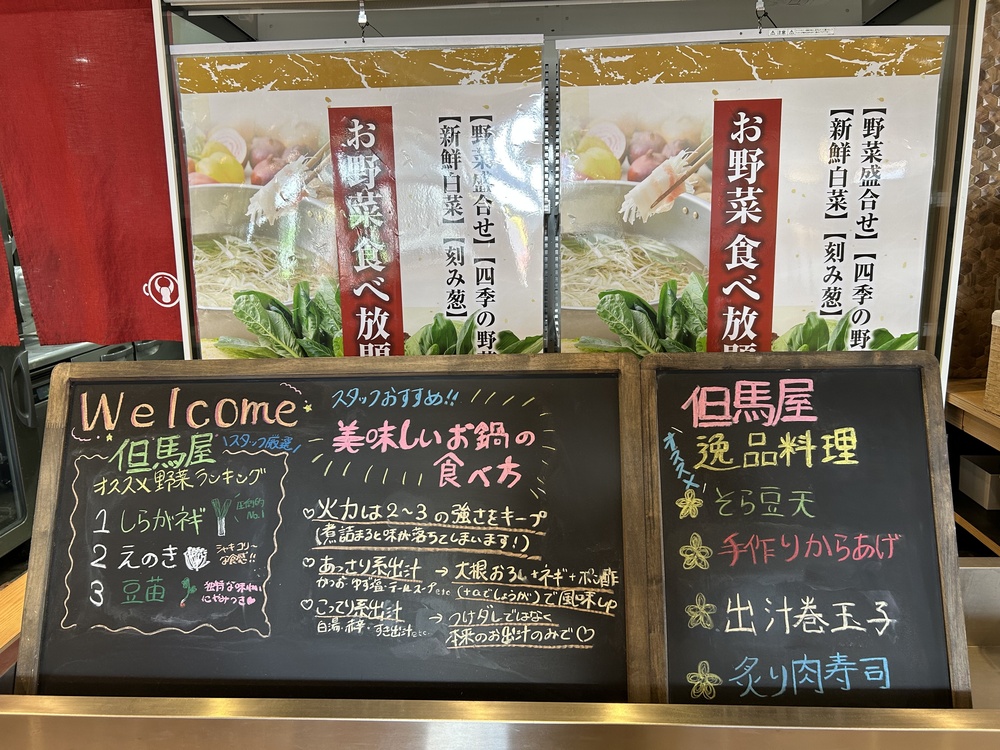 お野菜食べ放題
【野菜盛合せ】【四季の野菜
【新鮮白菜】【刻み葱】
お野菜食べ放題
【野菜盛合せ】【四季の野菜
【新鮮白菜】【刻み葱】
Welcome
但馬屋
スタッフ厳選
オススメ野菜ランキング
1 しらがネギ
圧倒的
No.1
2 えのき
シャキコリ〜
な食感!!
3 豆苗
独特な味わい
にやみつき
スタッフおすすめ!!
美味しいお鍋の
食べ方
♡火力は2〜3の強さをキープ
(煮詰まると味が落ちてしまいます!)
♡あっさり系出汁 → 大根おろし+ネギ+ポン酢
かつお・ゆず塩・テールスープetc (+αでしょうが)で風味up
♡こってり系出汁 → つけダレではなく
白湯・赤辛・すき出汁etc 本来のお出汁のみで♡
但馬屋
オススメ
逸品料理
そら豆天
手作りからあげ
出汁巻玉子
炙り肉寿司